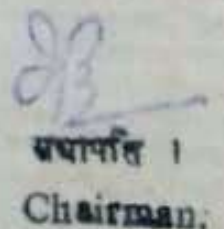 सभापति ।
Chairman,